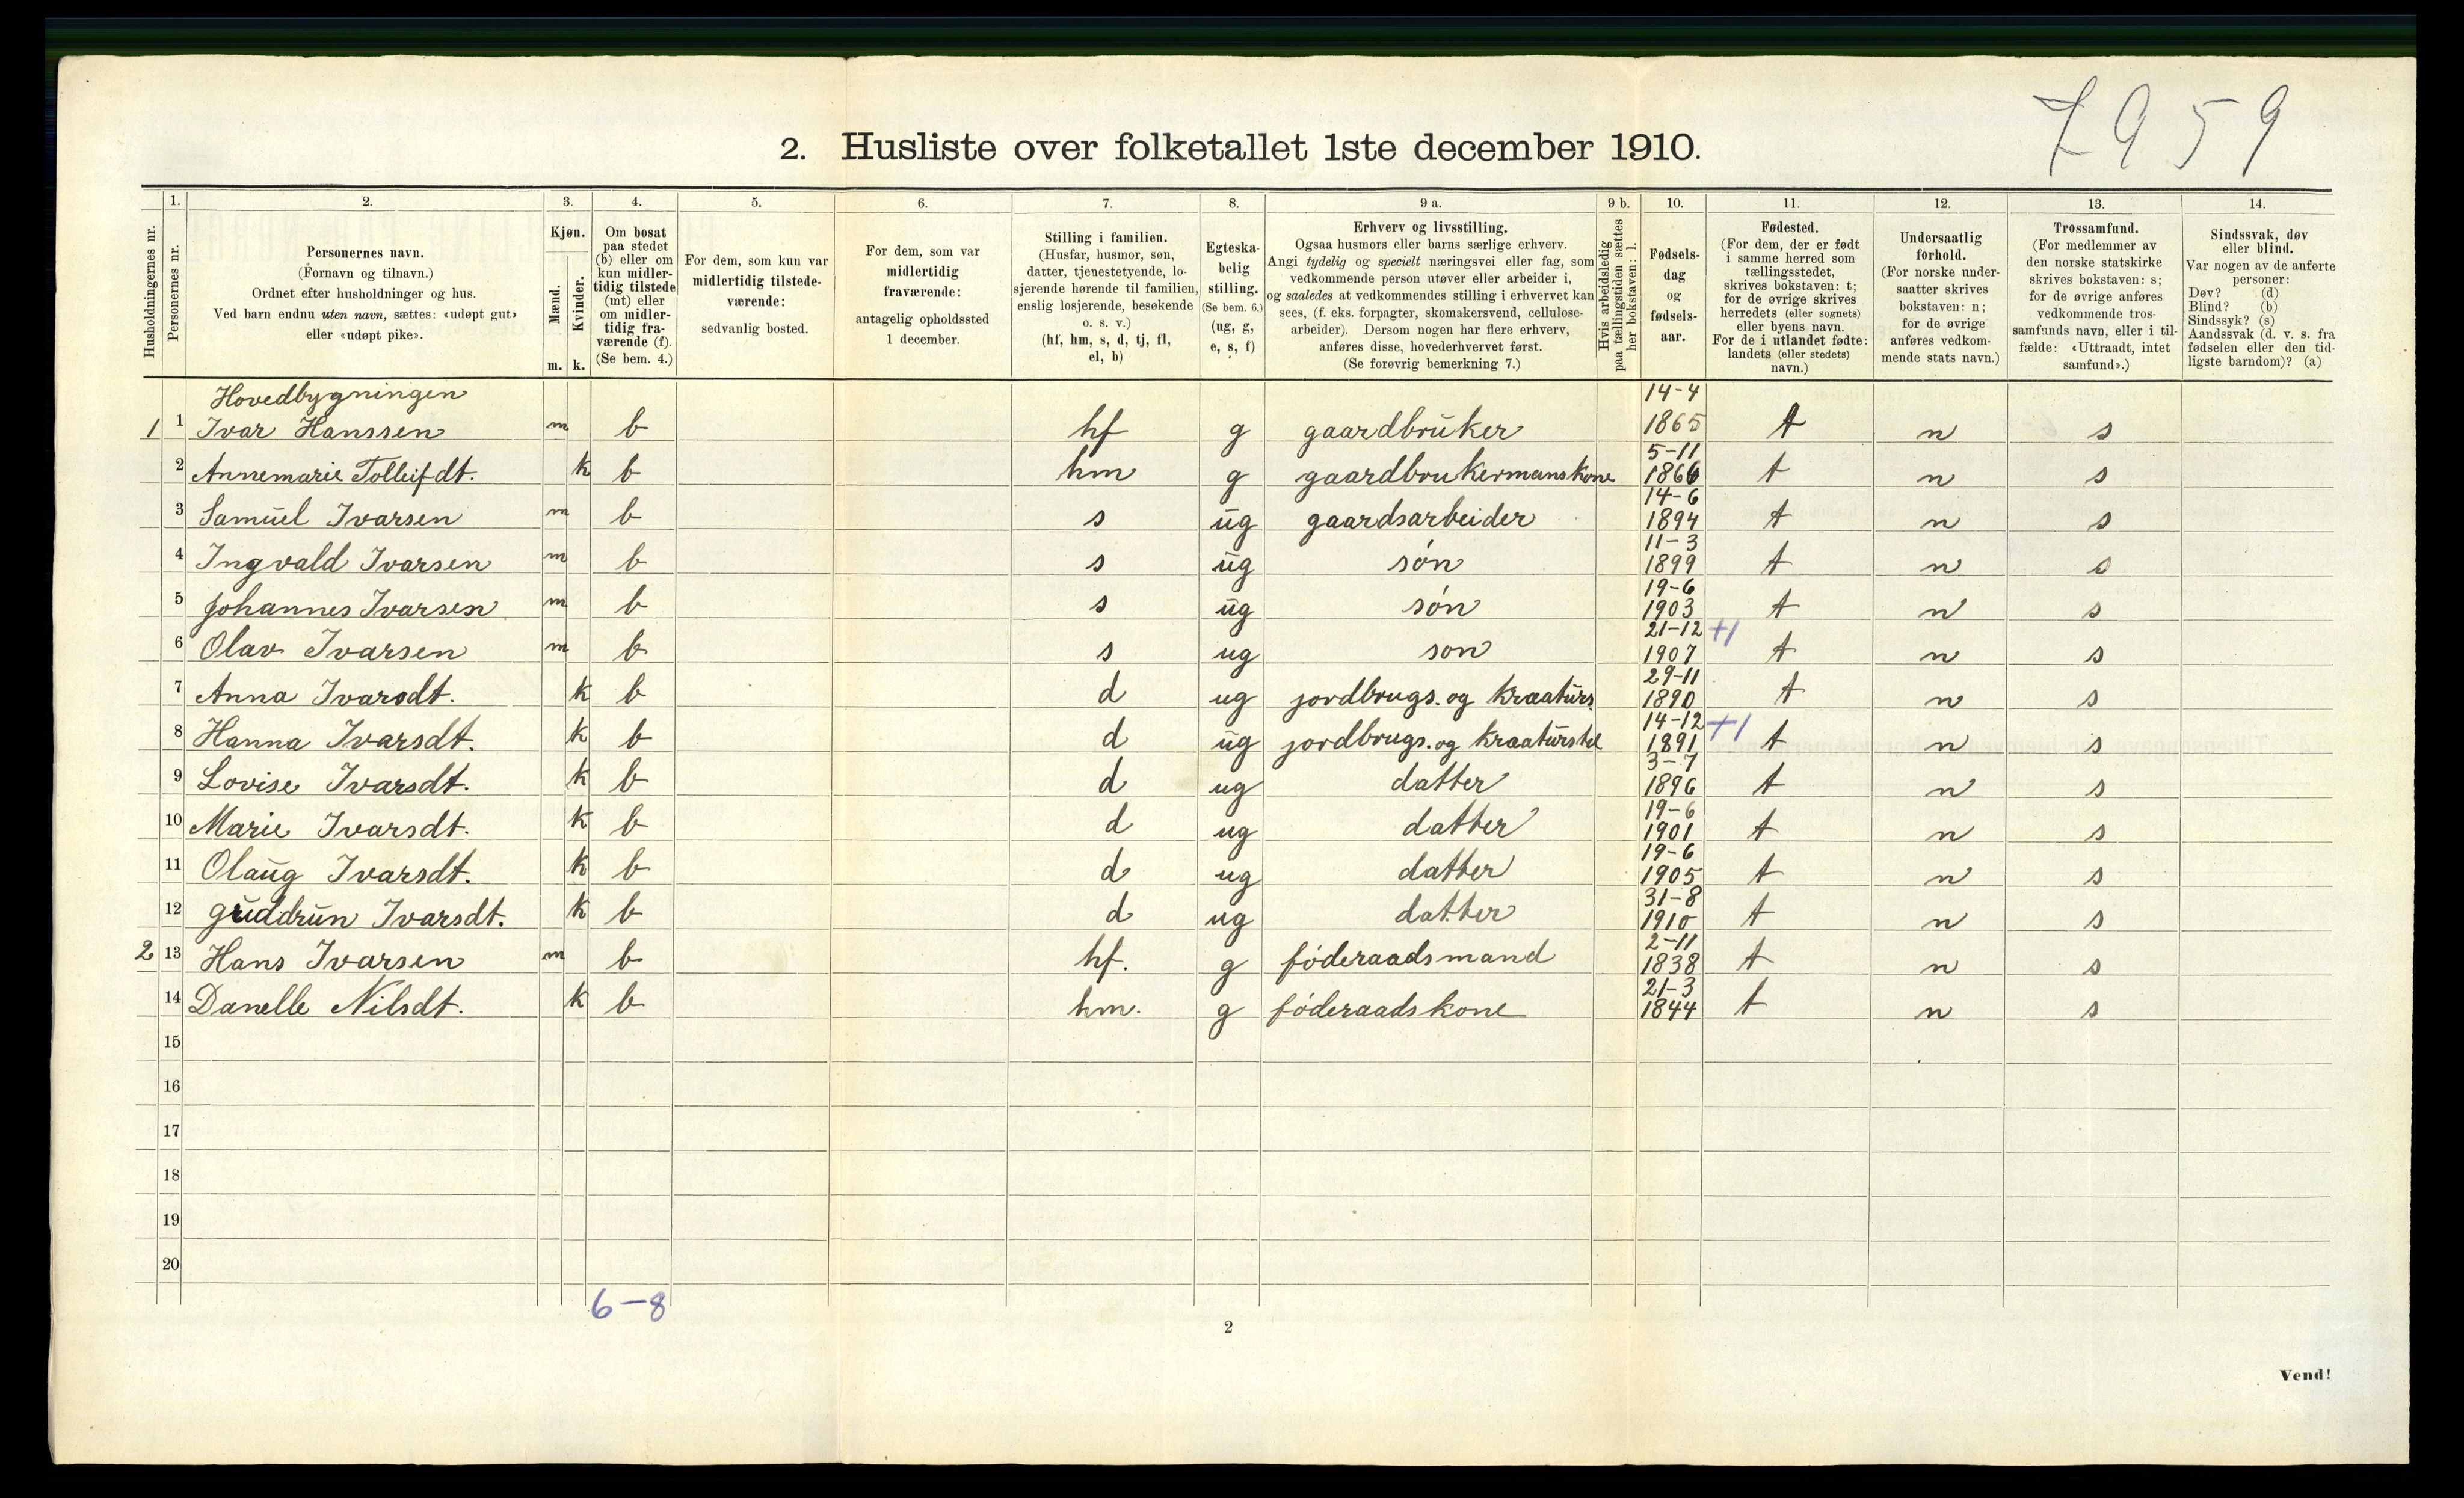 7959
2. Husliste over folketallet 1ste december 1910.
1. 2. 3. 4. 5. 6. 7. 8. 9 a. 9 b. 10. 11. 12. 13. 14.
Husholdningernes nr.
Personernes nr.
Personernes navn.
(Fornavn og tilnavn.)
Ordnet efter husholdninger og hus.
Ved barn endnu uten navn, sættes: «udøpt gut»
eller «udøpt pike».
Kjøn.
Mænd.
Kvinder.
m. k.
Om bosat
paa stedet
(b) eller om
kun midler-
tidig tilstede
(mt) eller
om midler-
tidig fra-
værende (f).
(Se bem. 4.)
For dem, som kun var
midlertidig tilstede-
værende:
sedvanlig bosted.
For dem, som var
midlertidig
fraværende:
antagelig opholdssted
1 december.
Stilling i familien.
(Husfar, husmor, søn,
datter, tjenestetyende, lo-
sjerende hørende til familien,
enslig losjerende, besøkende
o. s. v.)
(hf, hm, s, d, tj, fl,
el, b)
Egteska-
belig
stilling.
(Se bem. 6.)
(ug, g,
e, s, f)
Erhverv og livsstilling.
Ogsaa husmors eller barns særlige erhverv.
Angi tydelig og specielt næringsvei eller fag, som
vedkommende person utøver eller arbeider i,
og saaledes at vedkommendes stilling i erhvervet kan
sees, (f. eks. forpagter, skomakersvend, cellulose-
arbeider). Dersom nogen har flere erhverv,
anføres disse, hovederhvervet først.
(Se forøvrig bemerkning 7.)
Hvis arbeidsledig
paa tællingstiden sættes
her bokstaven: l.
Fødsels-
dag
og
fødsels-
aar.
Fødested.
(For dem, der er født
i samme herred som
tællingsstedet,
skrives bokstaven: t;
for de øvrige skrives
herredets (eller sognets)
eller byens navn.
For de i utlandet fødte:
landets (eller stedets)
navn.)
Undersaatlig
forhold.
(For norske under-
saatter skrives
bokstaven: n;
for de øvrige
anføres vedkom-
mende stats navn.)
Trossamfund.
(For medlemmer av
den norske statskirke
skrives bokstaven: s;
for de øvrige anføres
vedkommende tros-
samfunds navn, eller i til-
fælde: «Uttraadt, intet
samfund».)
Sindssvak, døv
eller blind.
Var nogen av de anførte
personer:
Døv? (d)
Blind? (b)
Sindssyk? (s)
Aandssvak (d. v. s. fra
fødselen eller den tid-
ligste barndom)? (a)
Hovedbygningen
1 1 Ivar Hanssen m b hf g gaardbruker 14-4 1865 t n s
2 Annemarie Tolleifdt. k b hm g gaardbrukermanskone 5-11 1866 t n s
3 Samuel Ivarsen m b s ug gaardsarbeider 14-6 1894 t n s
4 Ingvald Ivarsen m b s ug søn 11-3 1899 t n s
5 Johannes Ivarsen m b s ug søn 19-6 1903 t n s
6 Olav Ivarsen m b s ug son 21-12 1907 +1 t n s
7 Anna Ivarsdt. k b d ug jordbrugs. og kraaturs 29-11 1890 t n s
8 Hanna Ivarsdt. k b d ug jordbrugs. og kraaturstel 14-12 1891 +1 t n s
9 Lovise Ivarsdt. k b d ug datter 3-7 1896 t n s
10 Marie Ivarsdt. k b d ug datter 19-6 1901 t n s
11 Olaug Ivarsdt. k b d ug datter 19-6 1905 t n s
12 Guddrun Ivarsdt. k b d ug datter 31-8 1910 t n s
2 13 Hans Ivarsen m b hf. g føderaadsmand 2-11 1838 t n s
14 Danelle Nilsdt. k b hm. g føderaadskone 21-3 1844 t n s
15
16
17
18
19
20
6-8
2
Vend!